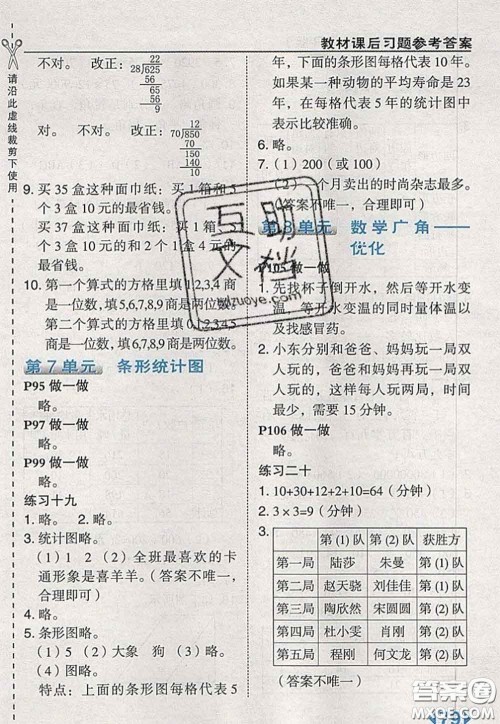 教材课后习题参考答案
请沿此虚线裁剪下使用
不对。 改正：
22
28√625
56
65
56
9
对。 对。 不对。 改正：
12
70√850
70
150
140
10
9. 买 35 盒这种面巾纸：买 1 箱和 5
个 3 盒 10 元的最省钱。
买 37 盒这种面巾纸：买 1 箱、5 个
3 盒 10 元的和 2 个 1 盒 4 元的
最省钱。
10. 第一个算式的方格里填1,2,3,4 商
是一位数,填5,6,7,8,9 商是两位数。
第二个算式的方格里填0,1,2,3,4,5
商是一位数,填6,7,8,9商是两位数。
第 7 单元 条形统计图
P95 做一做
略。
P97 做一做
略。
P99 做一做
略。
练习十九
1. 略。 2. 略。
3. 统计图略。
（1）1 2 （2）全班最喜欢的卡
通形象是喜羊羊。（答案不唯一，
合理即可）
4. 略。
5. 条形图略。
（1）5 （2）大象 狗 （3）略。
特点：上面的条形图每格代表 5
年，下面的条形图每格代表 10 年。
如果某一种动物的平均寿命是 23
年，在每格代表 5 年的统计图中
表示比较准确。
6. 略。
7.（1）200（或 100）
个月卖出的时尚杂志最多。
（答案不唯一，合理即可）
第 8 单元 数学广角——
优化
P105 做一做
1. 先找杯子倒开水，然后等开水变
温，等开水变温的时间量体温以
及找感冒药。
2. 小东分别和爸爸、妈妈玩一局双
人玩的，爸爸和妈妈再玩一局双
人玩的，这样每人玩两局，用时最
少，需要 15 分钟。
P106 做一做
略。
练习二十
1. 10+30+12+2+10=64（分钟）
2. 3×3=9（分钟）
3.
第 (1) 队 第 (2) 队 获胜方
第一局 陆莎 朱曼 第 (2) 队
第二局 赵天骁 刘佳佳 第 (1) 队
第三局 陶欣然 宋圆圆 第 (2) 队
第四局 杜小雯 肖刚 第 (1) 队
第五局 程刚 何文龙 第 (1) 队
（答案不唯一）
179
互助文档
bdzuoye.com
答案圈